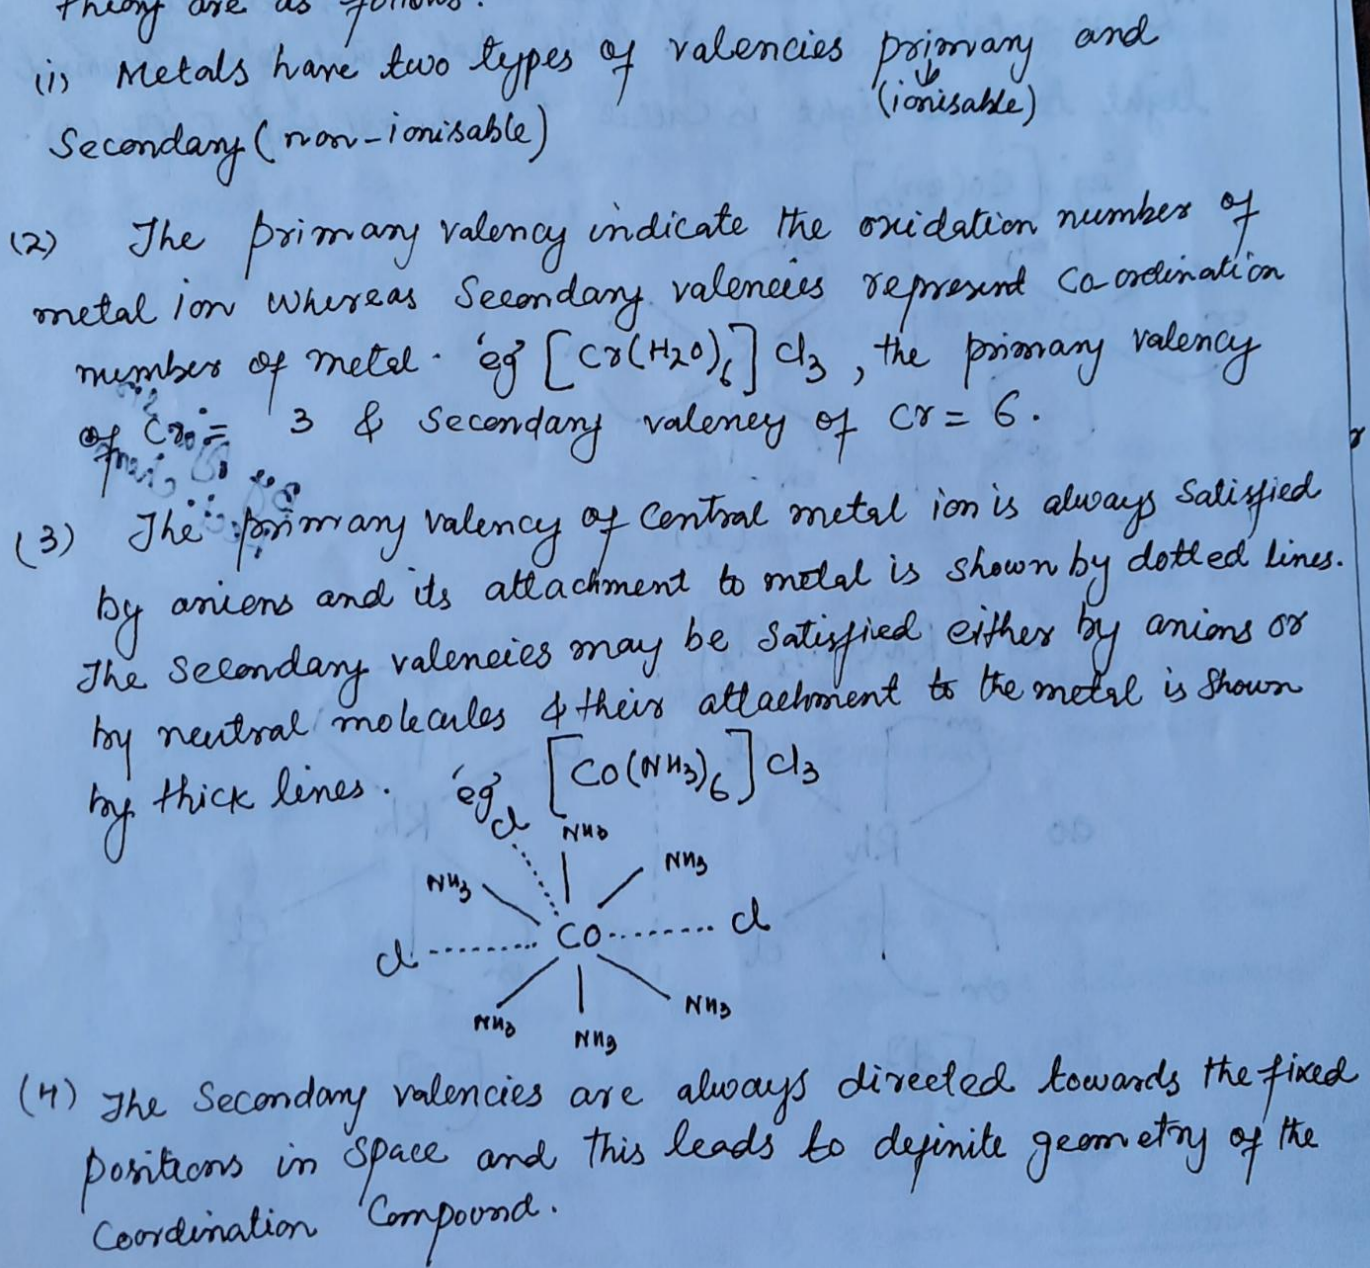 theory are as follows.
(i) Metals have two types of valencies primary and
(ionisable)
Secondary (non-ionisable)
(2) The primary valency indicate the oxidation number of
metal ion whereas Secondary valencies represent Co-ordination
number of metal. 'eg' [Cr(H2O)6]Cl3, the primary valency
of Cr = 3 & Secondary valency of Cr = 6.
(3) The primary valency of central metal ion is always Satisfied
by anions and its attachment to metal is shown by dotted lines.
The Secondary valencies may be satisfied either by anions or
by neutral molecules & their attachment to the metal is shown
by thick lines. 'eg' [Co(NH3)6]Cl3
Cl NH3
NH3 NH3
Cl Co Cl
NH3 NH3 NH3
(4) The Secondary valencies are always directed towards the fixed
positions in space and this leads to definite geometry of the
Coordination Compound.